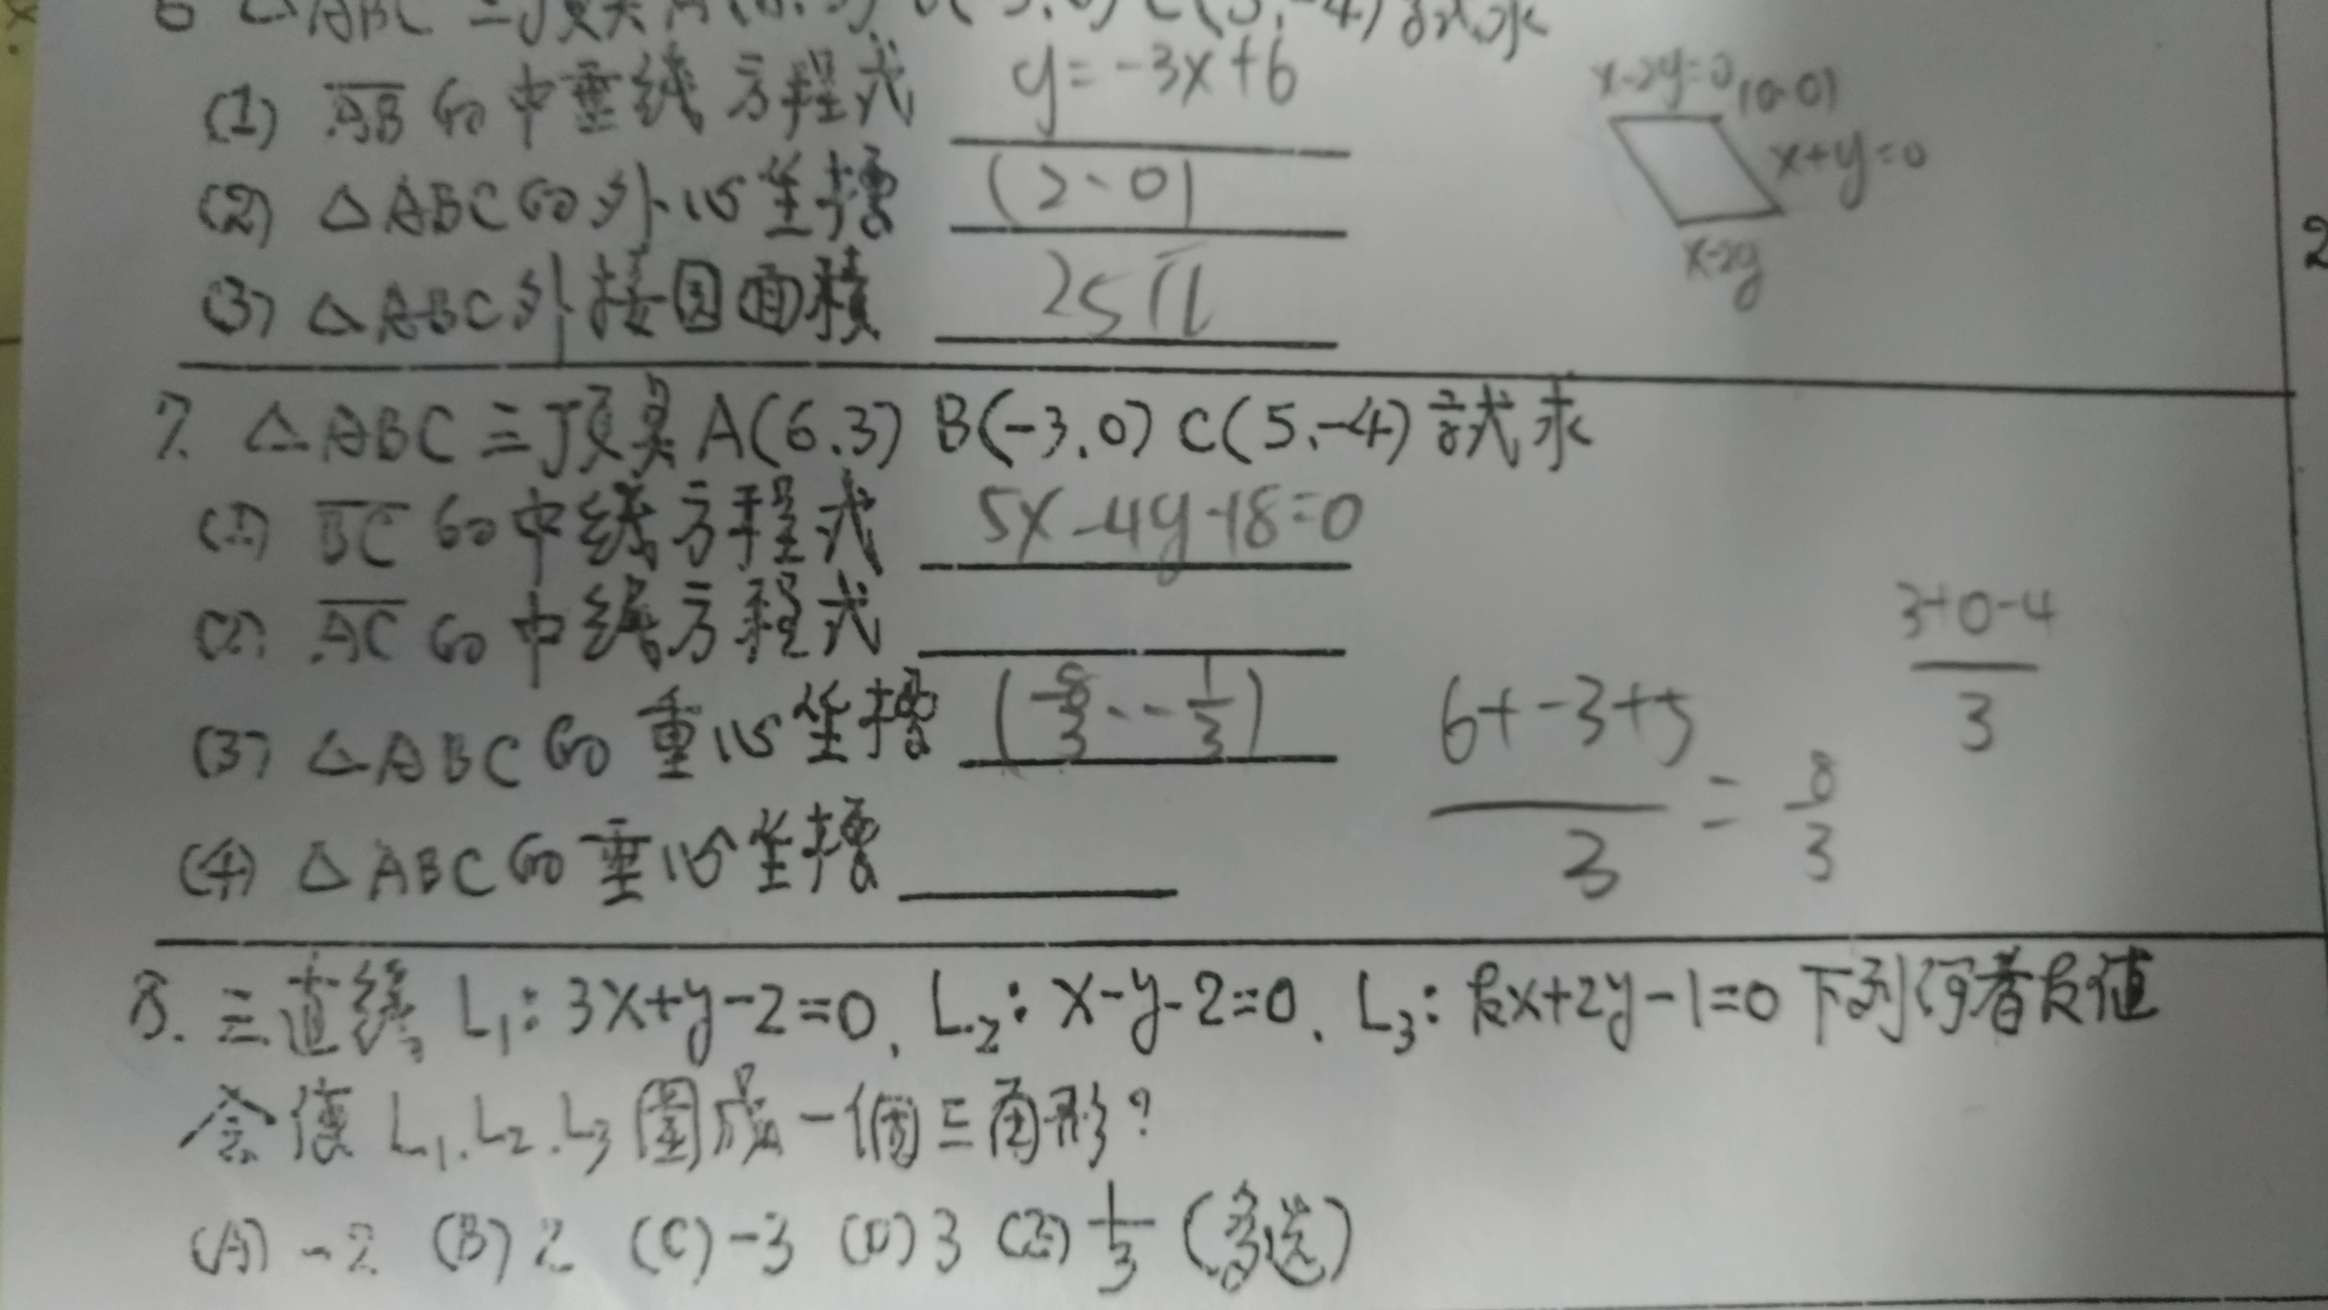 6 △ABC 三頂點A(6,3) B(-3,0) C(5,-4) 試求
(1) AB的中垂線方程式 y=-3x+6
(2) △ABC的外心坐標 (2、0)
(3) △ABC外接圓面積 25π
x-2y=0 (0,0)
x+y=0
x-2y
2
7. △ABC三頂點A(6.3) B(-3.0) C(5、-4) 試求
(1) BC的中線方程式 5x-4y-18=0
(2) AC的中線方程式
(3) △ABC的重心坐標 (8/3、-1/3)
(4) △ABC的垂心坐標
6+-3+5/3 = 8/3
3+0-4/3
8. 三直線 L₁: 3x+y-2=0、L₂: x-y-2=0、L₃: kx+2y-1=0 下列何者k值
會使 L₁.L₂.L₃圍成一個三角形?
(A) -2 (B) 2 (C) -3 (D) 3 (E) 1/3 (多選)